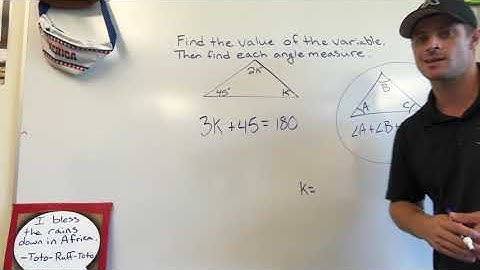 Find the value of the variable.
Then find each angle measure.
2K
45°
K°
3K+45=180
K=
B
A
C
∠A+∠B+
I bless
the rains
down in Africa.
-Toto-Ruff-Toto